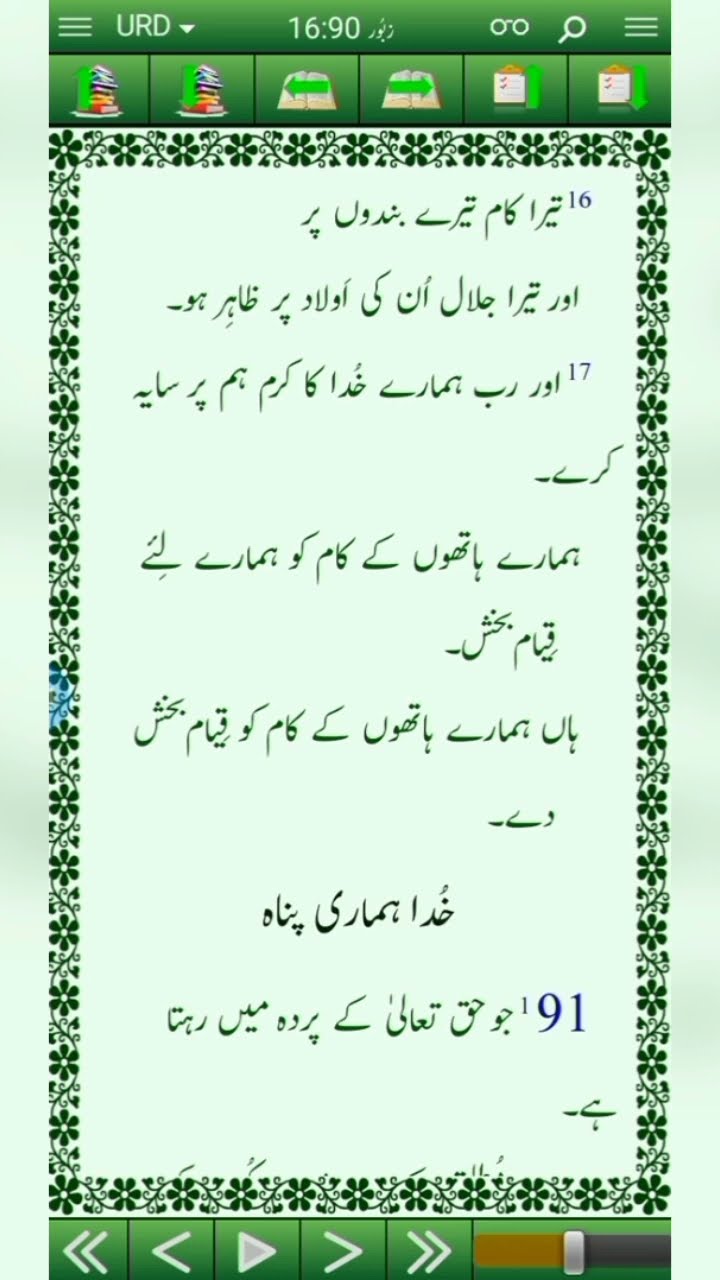 URD زبُور 16:90
16 تیرا کام تیرے بندوں پر
اور تیرا جلال اُن کی اَولاد پر ظاہِر ہو۔
17 اور رب ہمارے خُدا کا کرم ہم پر سایہ
کرے۔
ہمارے ہاتھوں کے کام کو ہمارے لِئے
قِیام بخش۔
ہاں ہمارے ہاتھوں کے کام کو قِیام بخش
دے۔
خُدا ہماری پناہ
91 1 جو حق تعالیٰ کے پردہ میں رہتا
ہے۔